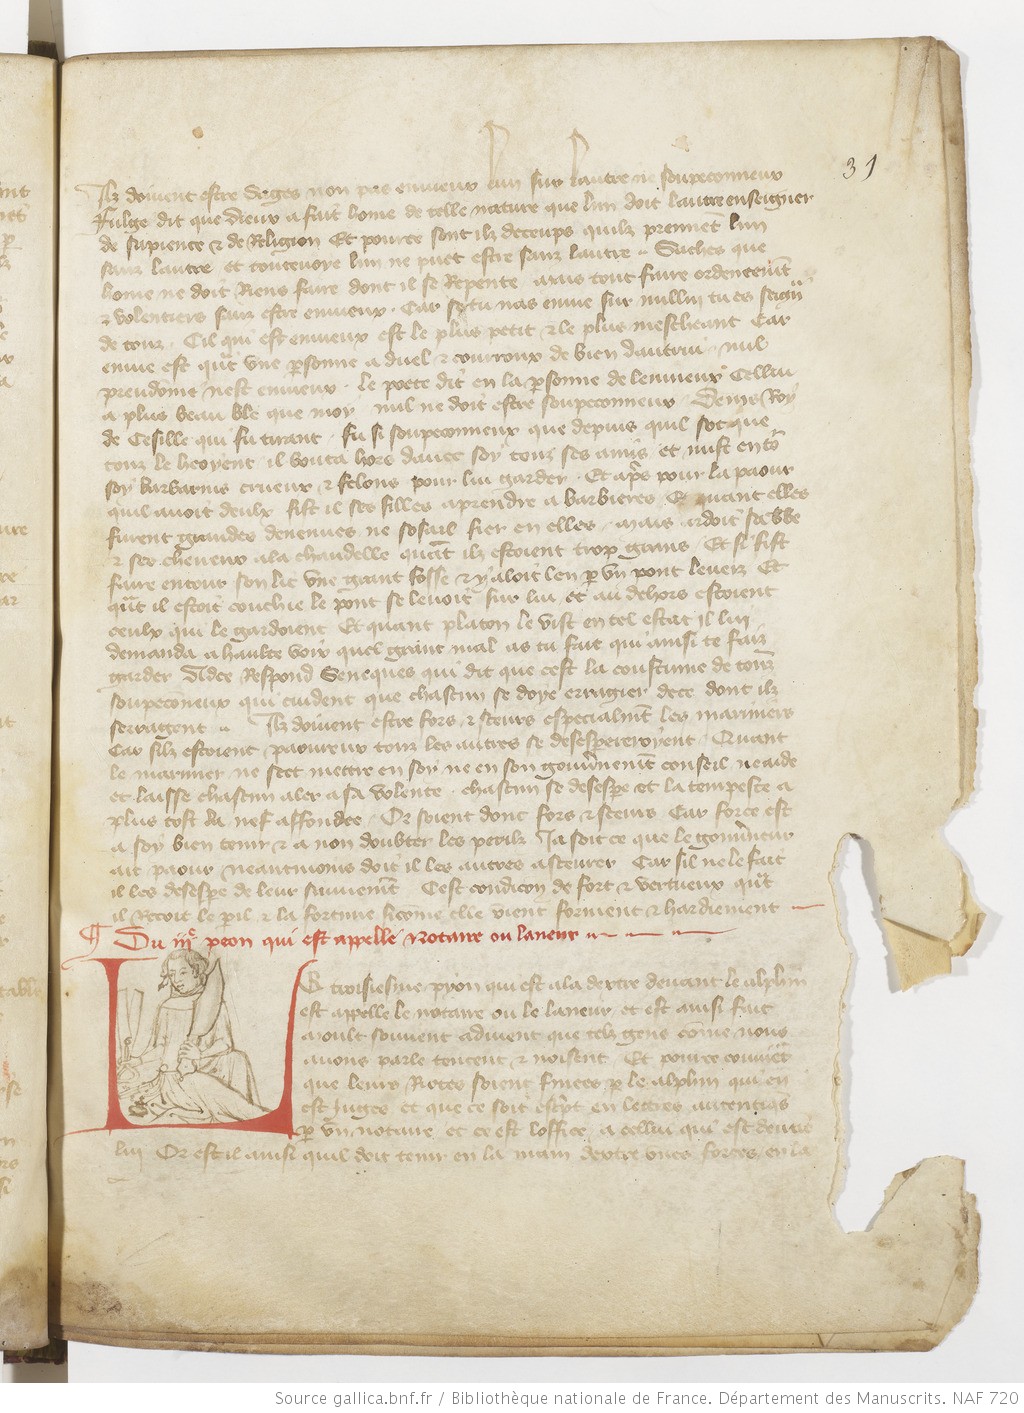 31
Ilz doivent estre sages non pas envieux lun sur lautre ne soupeconneux
Fulge dit que dieux a fait home de telle nature que lun doit lautre enseigner
de sapience & de Religion Et pource sont ilz deceups quilz prennēt lun
sanz lautre et toutevoye lun ne puet estre sanz lautre .. Saches que
home ne doit Riens faire dont il se Repente mais tout faire ordeneemēt
& volentiers sanz estre envieux . Car se tu nas envie sur nullui tu es seigñ
de touz . Cil qui est envieux est le plus petit & le plus mescheant Car
envie est qñt vne psonne a duel & courroux de bien dautrui . nul
preudōme nest envieux . le poete dit en la psonne de lenvieux Cellui
a plus beau ble que moy . nul ne doit estre soupeconneux . Denis Roy
de Cesille qui fu tirant . fu si soupeconneux que depuis quil sot que
touz le heoyent il bouta hors davec soy touz ses amis et mist entō
soy barbarins crueux & felons pour lui garder . Et aps pour la paour
quil avoit deulx fist il ses filles aprendre a barbieres Et quant elles
furent grandes devenues ne sosait fier en elles . mais ardoit sa bbe
& ses cheveux a la chandelle quāt ilz estoient trop grans . Et si fist
faire entour son lit vne grant fosse & y aloit len p vn pont leveiz Et
qñt il estoit couchie le pont se levoit sur lui et au dehors estoient
ceulx qui le gardoient Et quant platon le vist en tel estat Il lui
demanda a haulte voix quel grant mal as tu fait qui ainsi te faiz
garder A dce Respond Seneques qui dit que cest la coustume de touz
soupecōneux qui cuident que chascun se doye erragier de ce dont ilz
serragent .. Ilz doivent estre fors & sceurs especialmēt les mariniers
Car silz estoient paoureux touz les autres se desespereroyent . Quant
le marinier ne scet mettre en soy ne en son gouvnemēt conseil ne aide
et laisse chascun aler a sa volente . chascun se desespe et la tempeste a
plus tost la nef affondee . Or soient donc fors & sceurs Car force est
a soy bien tenir & a non doubter les perilz Ja soit ce que le gouvneur
ait paour neantmoins doit il les autres asceurer Car sil ne le fait
il les desespe de leur sauvemēt Cest condicōy de fort & vertueux qñt
il Recoit le pil & la fortune si cōme elle vient forment & hardiement
¶ Du iijᵉ peon qui est appelle Notaire ou laneur
LE troisiesme pyon qui est a la dextre devant le alphin
est appelle le notaire ou le laneur et est ainsi fait
moult souvent advient que telz gens cōme nous
avons parle tencent & noisent Et pource convīet
que leurs Notes soient finees p le alphin qui en
est juges et que ce soit escpt en lettres autentiqs
p vn notaire et ce est loffice a cellui qui est devāt
lui Or est il ainsi quil doit tenir en la main dextre vnes forces en la
Source gallica.bnf.fr / Bibliothèque nationale de France. Département des Manuscrits. NAF 720